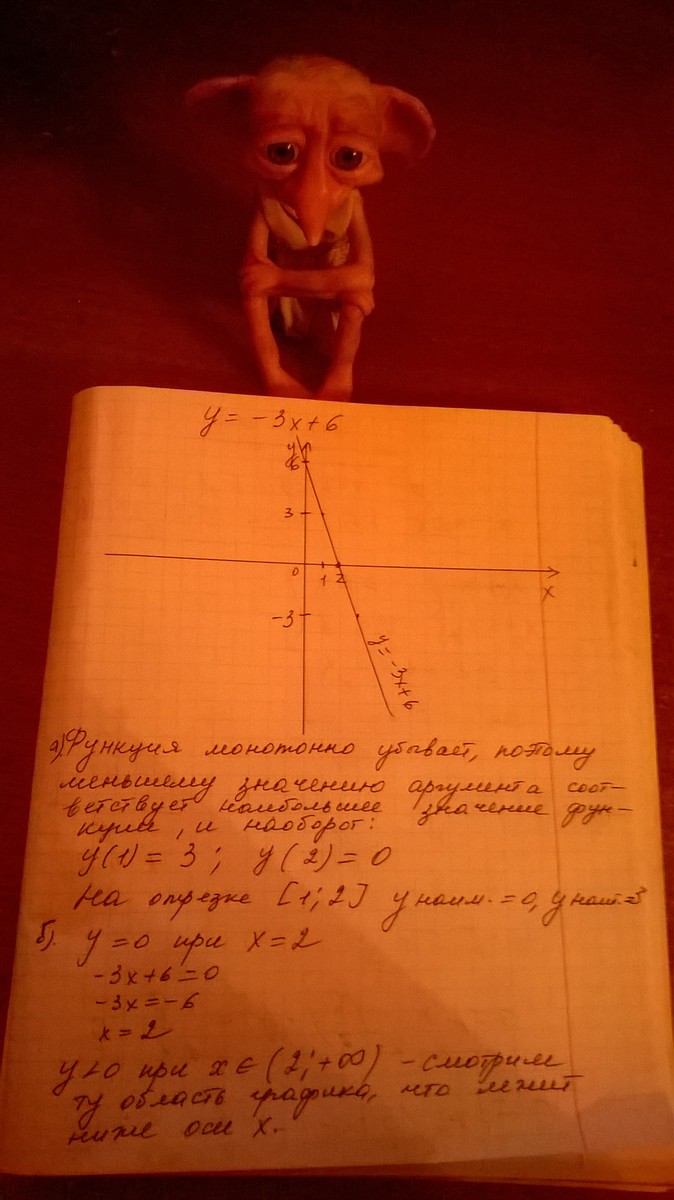 y = -3x+6
y
6
3
0
1 2
x
-3
y = -3x+6
а) Функция монотонно убывает, поэтому
меньшему значению аргумента соот-
ветствует наибольшее значение фун-
кции, и наоборот:
y(1) = 3 ; y(2) = 0
На отрезке [1; 2] y наим. = 0, y наиб. = 3
б). y = 0 при x = 2
-3x+6 = 0
-3x = -6
x = 2
y < 0 при x ∈ (2; +∞) - смотрим
ту область графика, что лежит
ниже оси x.